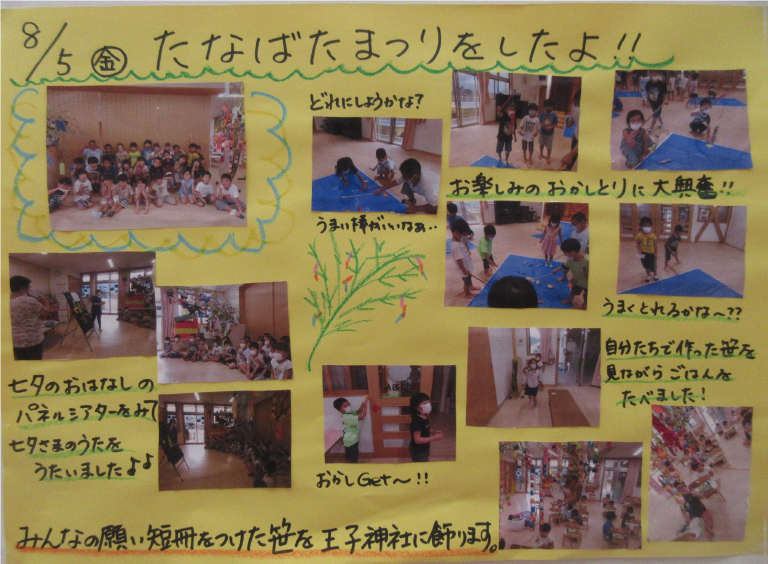 8/5 ㊎ たなばたまつりをしたよ!!
どれにしようかな?
うまい棒がいいなぁ‥
お楽しみの おかしとりに 大興奮!!
うまくとれるかな〜??
七夕のおはなしの
パネルシアターをみて
七夕さまのうたを
うたいました♪♪
おかしGet〜!!
自分たちで作った笹を
見ながら ごはんを
たべました!
みんなの願い短冊をつけた笹を 王子神社に飾ります。